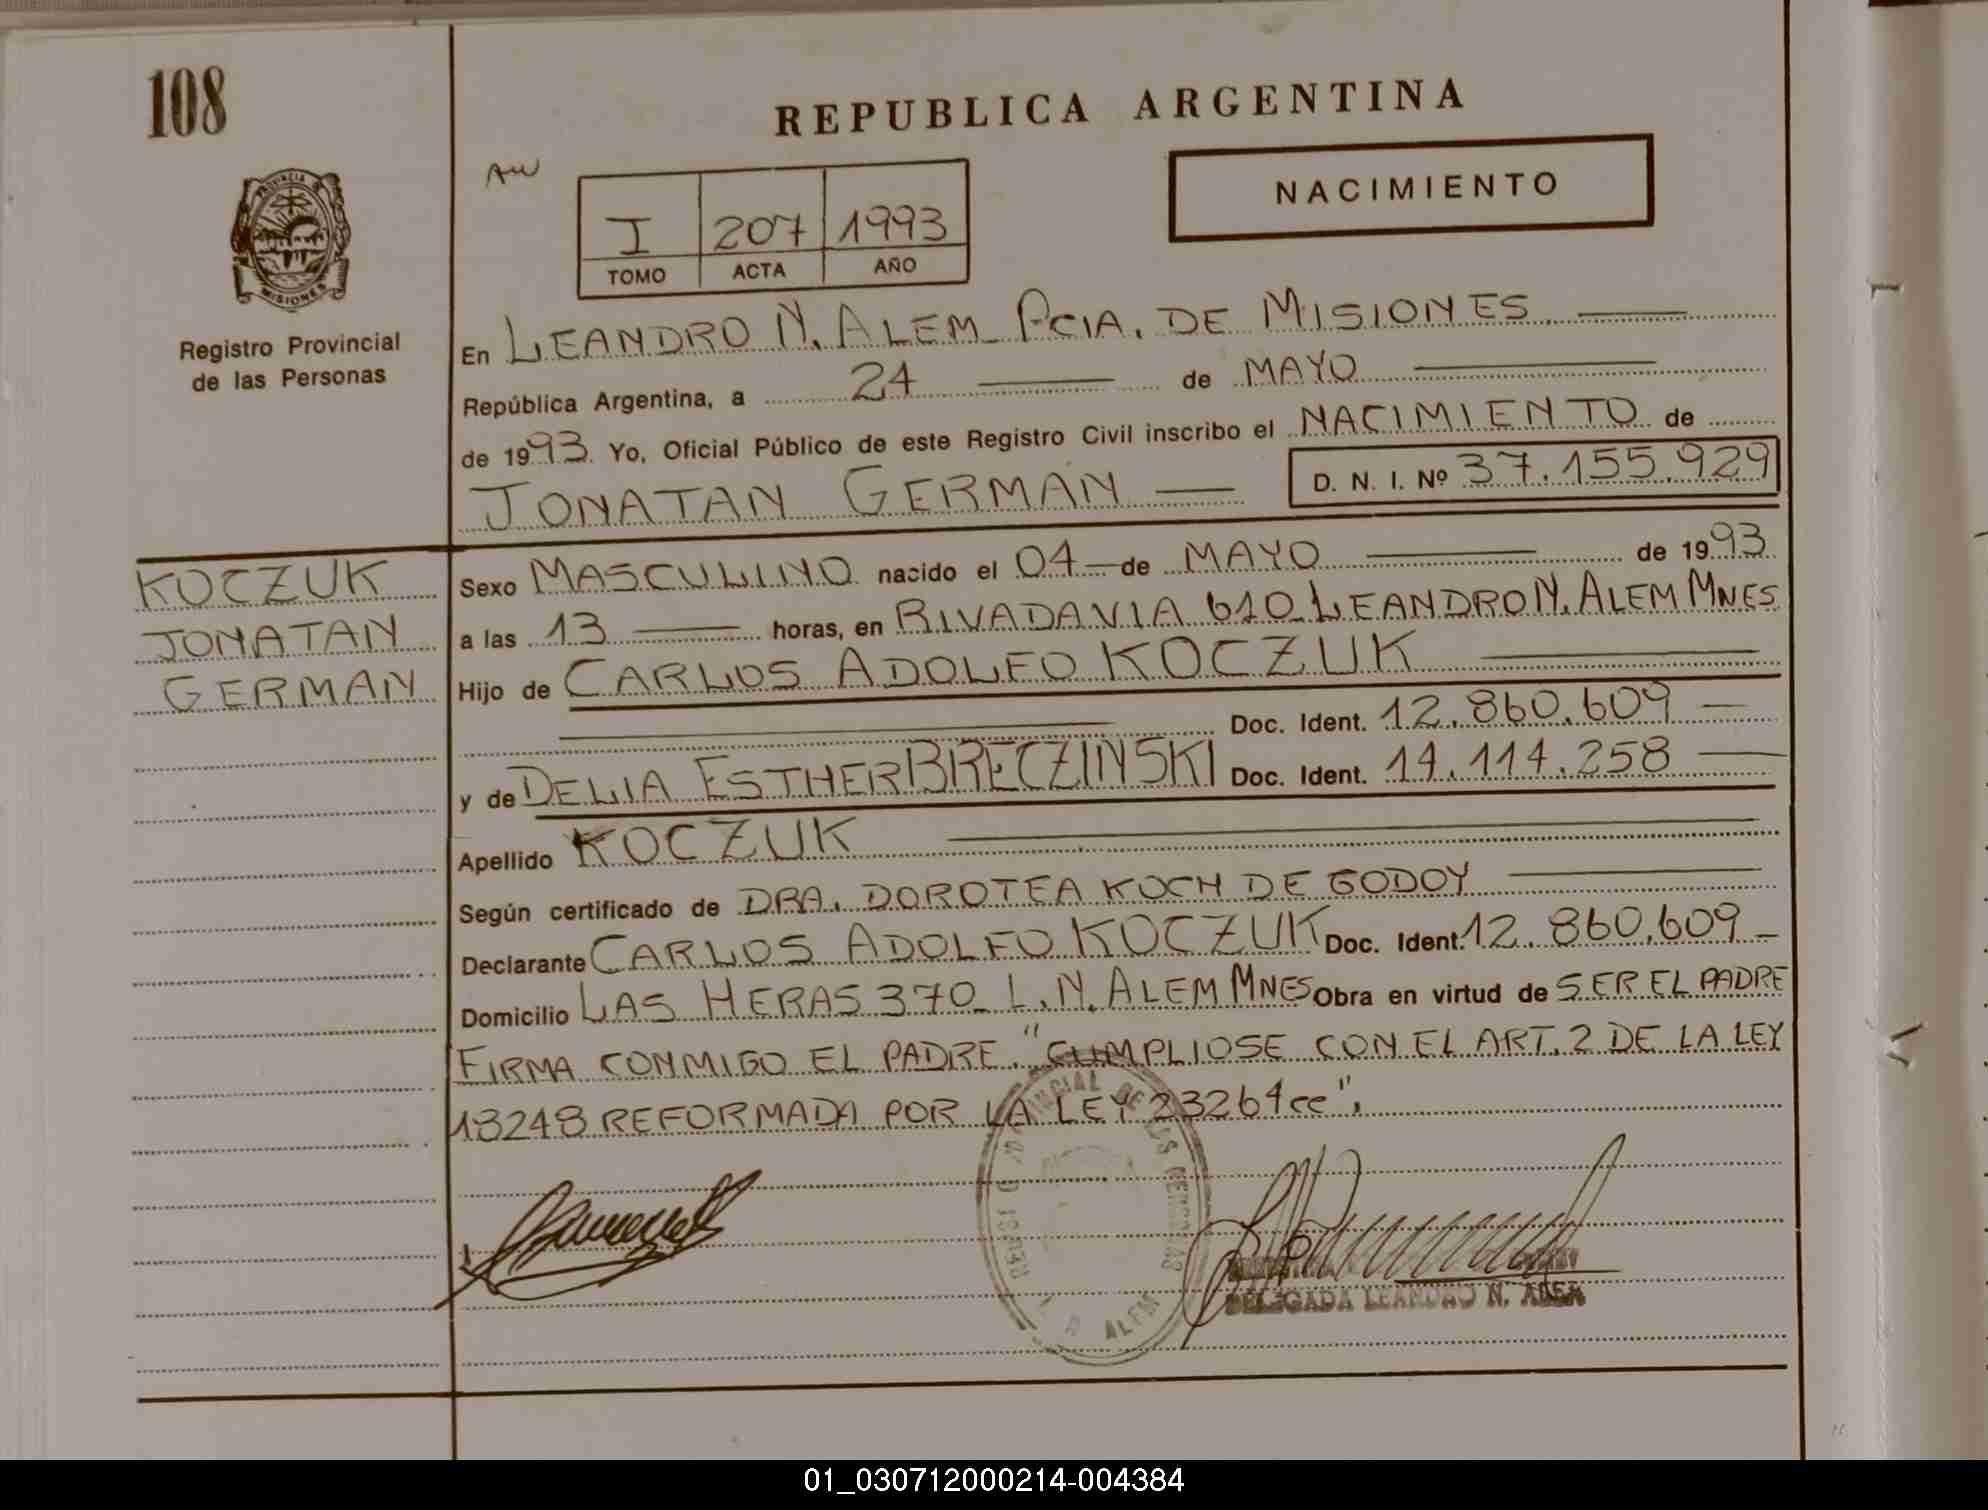 108
REPUBLICA ARGENTINA
NACIMIENTO
I 207 1993
TOMO ACTA AÑO
PROVINCIA DE
MISIONES
Registro Provincial
de las Personas
En LEANDRO N. ALEM PCIA. DE MISIONES
República Argentina, a 24 de MAYO
de 1993 Yo, Oficial Público de este Registro Civil inscribo el NACIMIENTO de
JONATAN GERMAN D. N. I. Nº 37.155.929
KOCZUK
JONATAN
GERMAN
Sexo MASCULINO nacido el 04 de MAYO de 1993
a las 13 horas, en RIVADAVIA 610 LEANDRO N. ALEM MNES
Hijo de CARLOS ADOLFO KOCZUK
Doc. Ident. 12.860.609
y de DELIA ESTHER BRECZINSKI Doc. Ident. 14.114.258
Apellido KOCZUK
Según certificado de DRA. DOROTEA KOCH DE GODOY
Declarante CARLOS ADOLFO KOCZUK Doc. Ident. 12.860.609
Domicilio LAS HERAS 370 L.N. ALEM MNES Obra en virtud de SER EL PADRE
FIRMA CONMIGO EL PADRE. "CUMPLIOSE CON EL ART. 2 DE LA LEY
18248 REFORMADA POR LA LEY 23264 cc".
DELEGADA LEANDRO N. ALEM
01_030712000214-004384